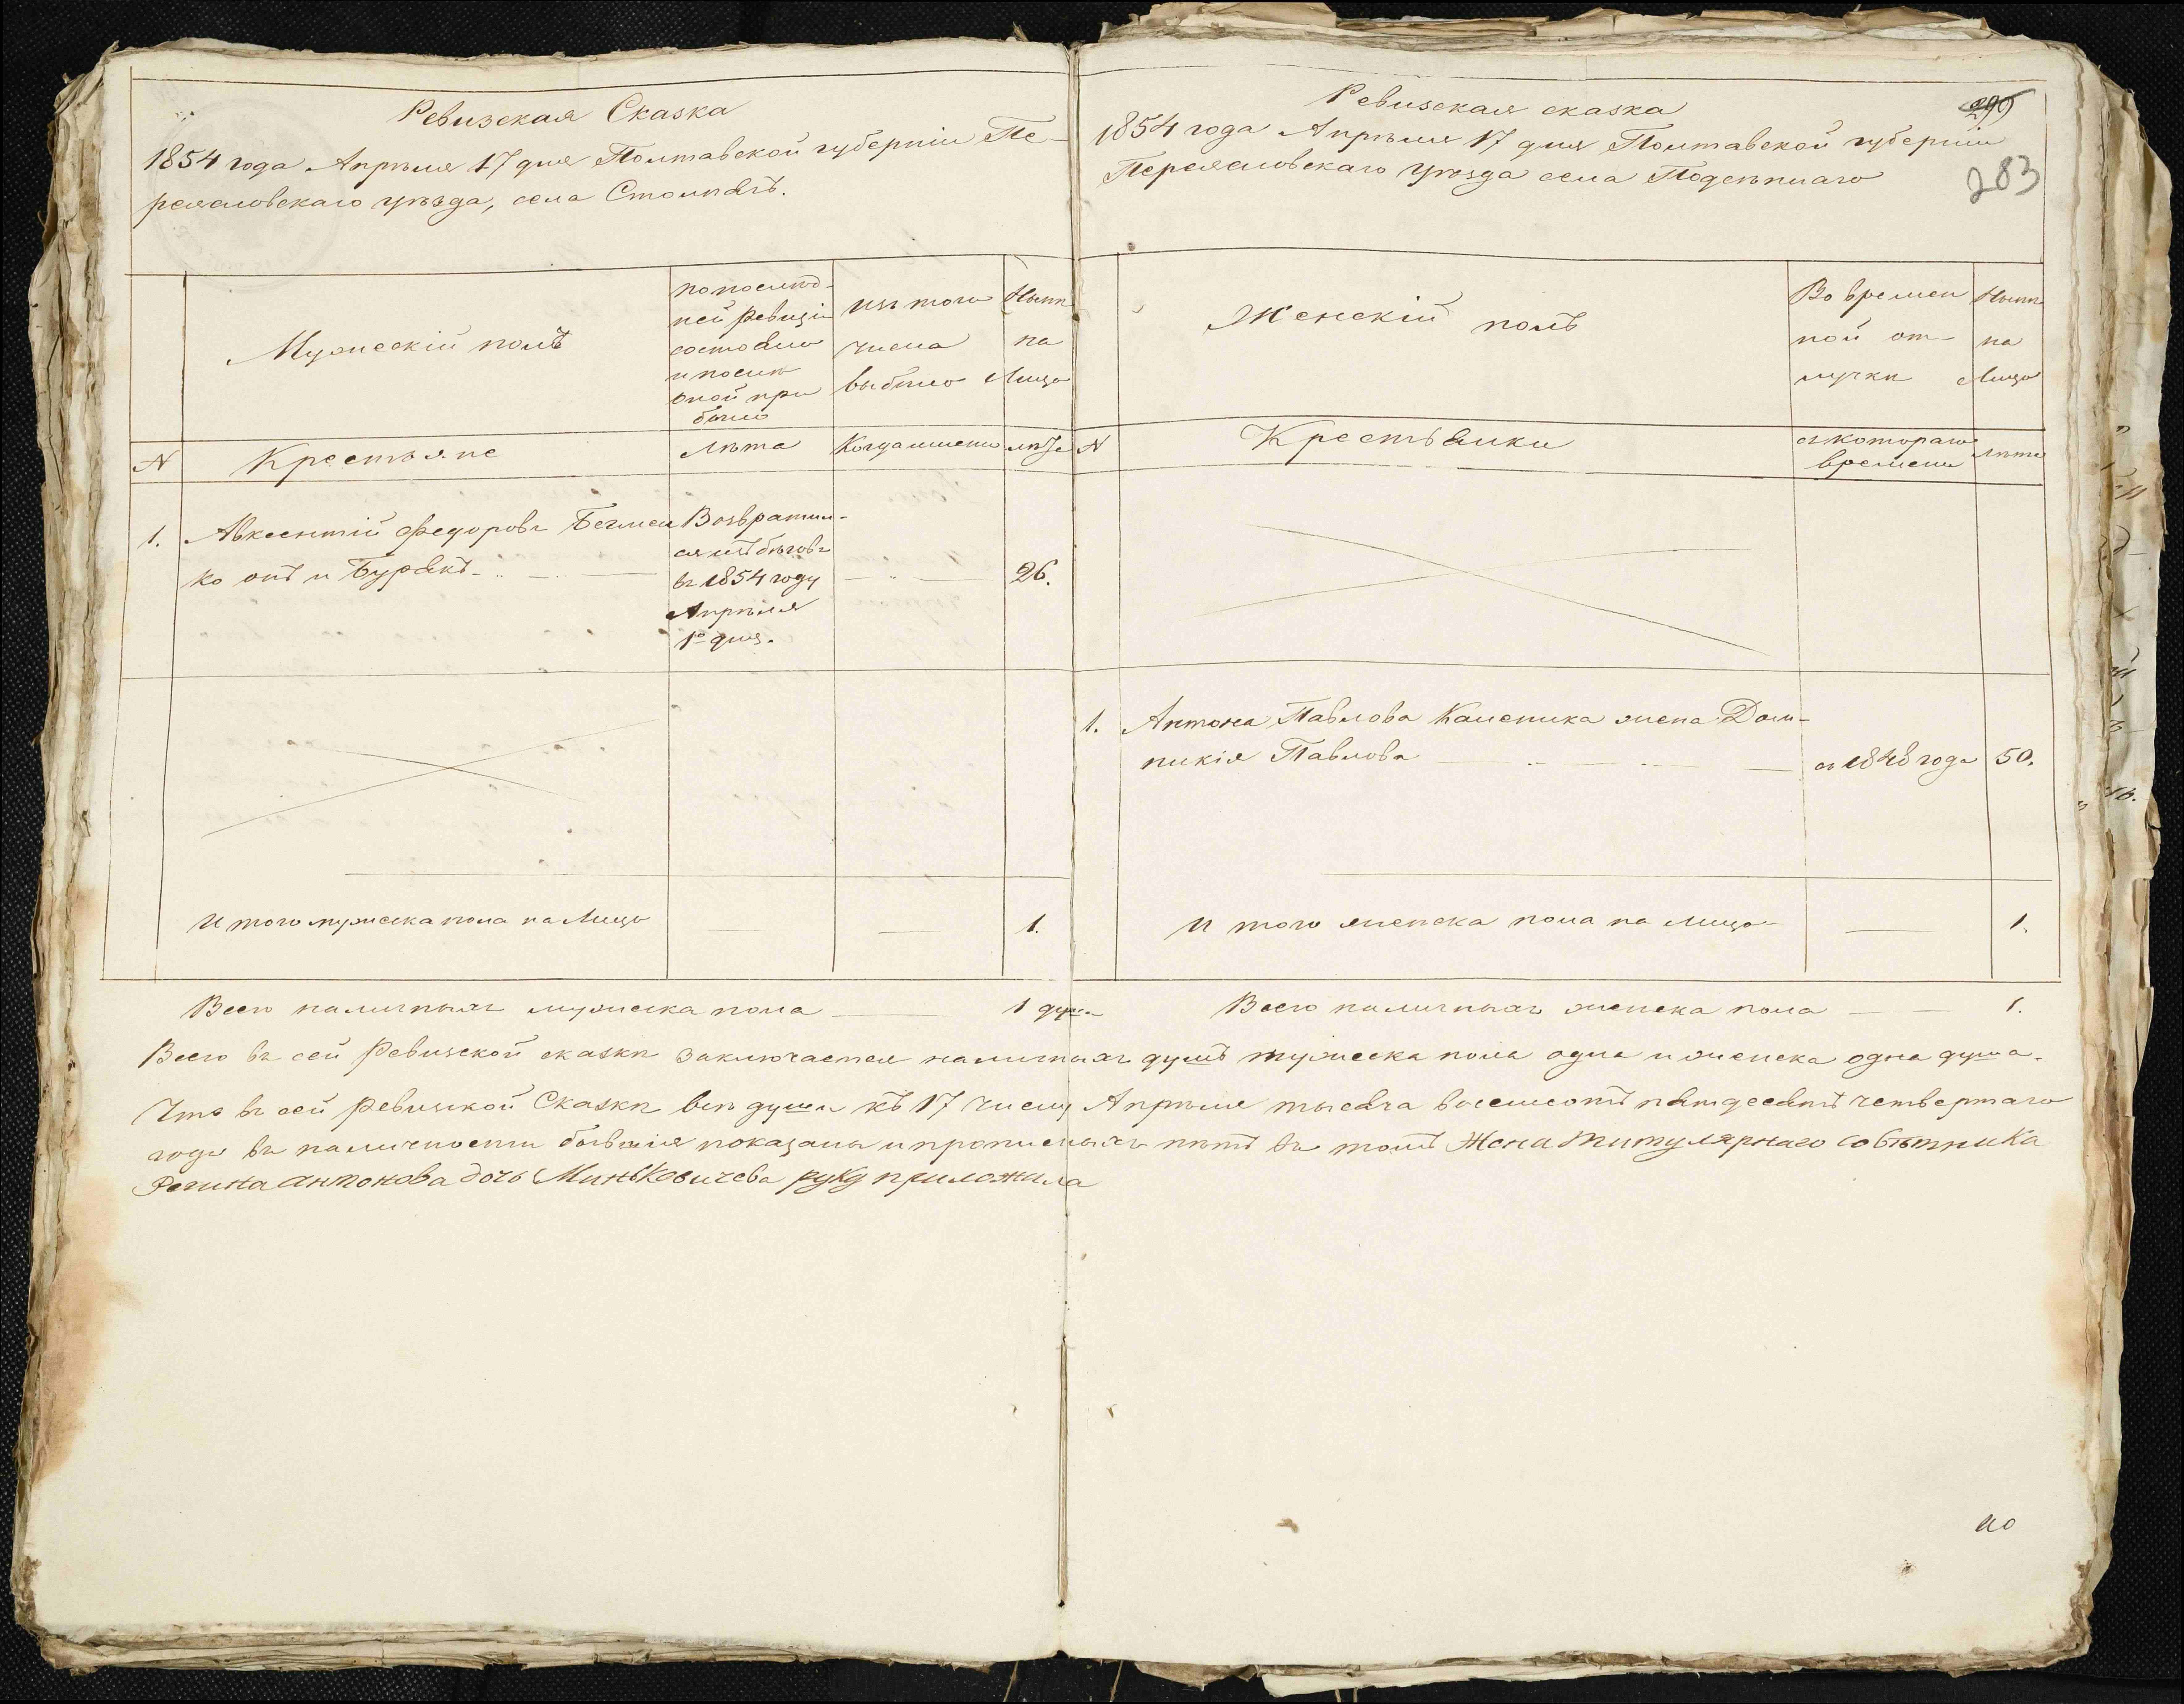 Ревизская Сказка
1854 года Апрѣля 17 дня Полтавской губерніи Пе-
реяславскаго уѣзда, села Столпягъ.
Мужескій полъ
по послѣд-
ней ревизіи
состояло
и послѣ
оной при
было
изъ того
числа
выбыло
Нынѣ
на
Лицо
N
Крестьяне
Лѣта
Когда именно
лѣта
1. Авксентій Федоровъ Бегмен
ко онъ и Бурякъ
Возвратил-
ся изъ бѣговъ
въ 1854 году
Апрѣля
1го дня.
26.
И того мужеска пола на Лицо
1.
Всего наличныхъ мужеска пола 1 душа
Ревизская сказка
299
1854 года Апрѣля 17 дня Полтавской губерніи
283
Переяславскаго Уѣзда села Подсѣннаго
Женскій полъ
Во времен
ной от-
лучкѣ
Нынѣ
на
Лицо
N
Крестьянки
съ котораго
времени
Лѣта
1. Антона Павлова Каленика жена Дом-
никія Павлова съ 1848 года 50.
И того женска пола на лицо 1.
Всего наличныхъ женска пола 1.
Всего въ сей Ревизской сказкѣ заключается наличныхъ душъ мужеска пола одна и женска одна душа.
Что въ сей ревизской Сказкѣ всѣ души къ 17 числу Апрѣля тысяча восемсотъ пятдесятъ четвертаго
года въ наличности бывшія показаны и прописныхъ нѣтъ въ томъ Жена титулярнаго совѣтника
Регина антонова дочь Миньковичева руку приложила